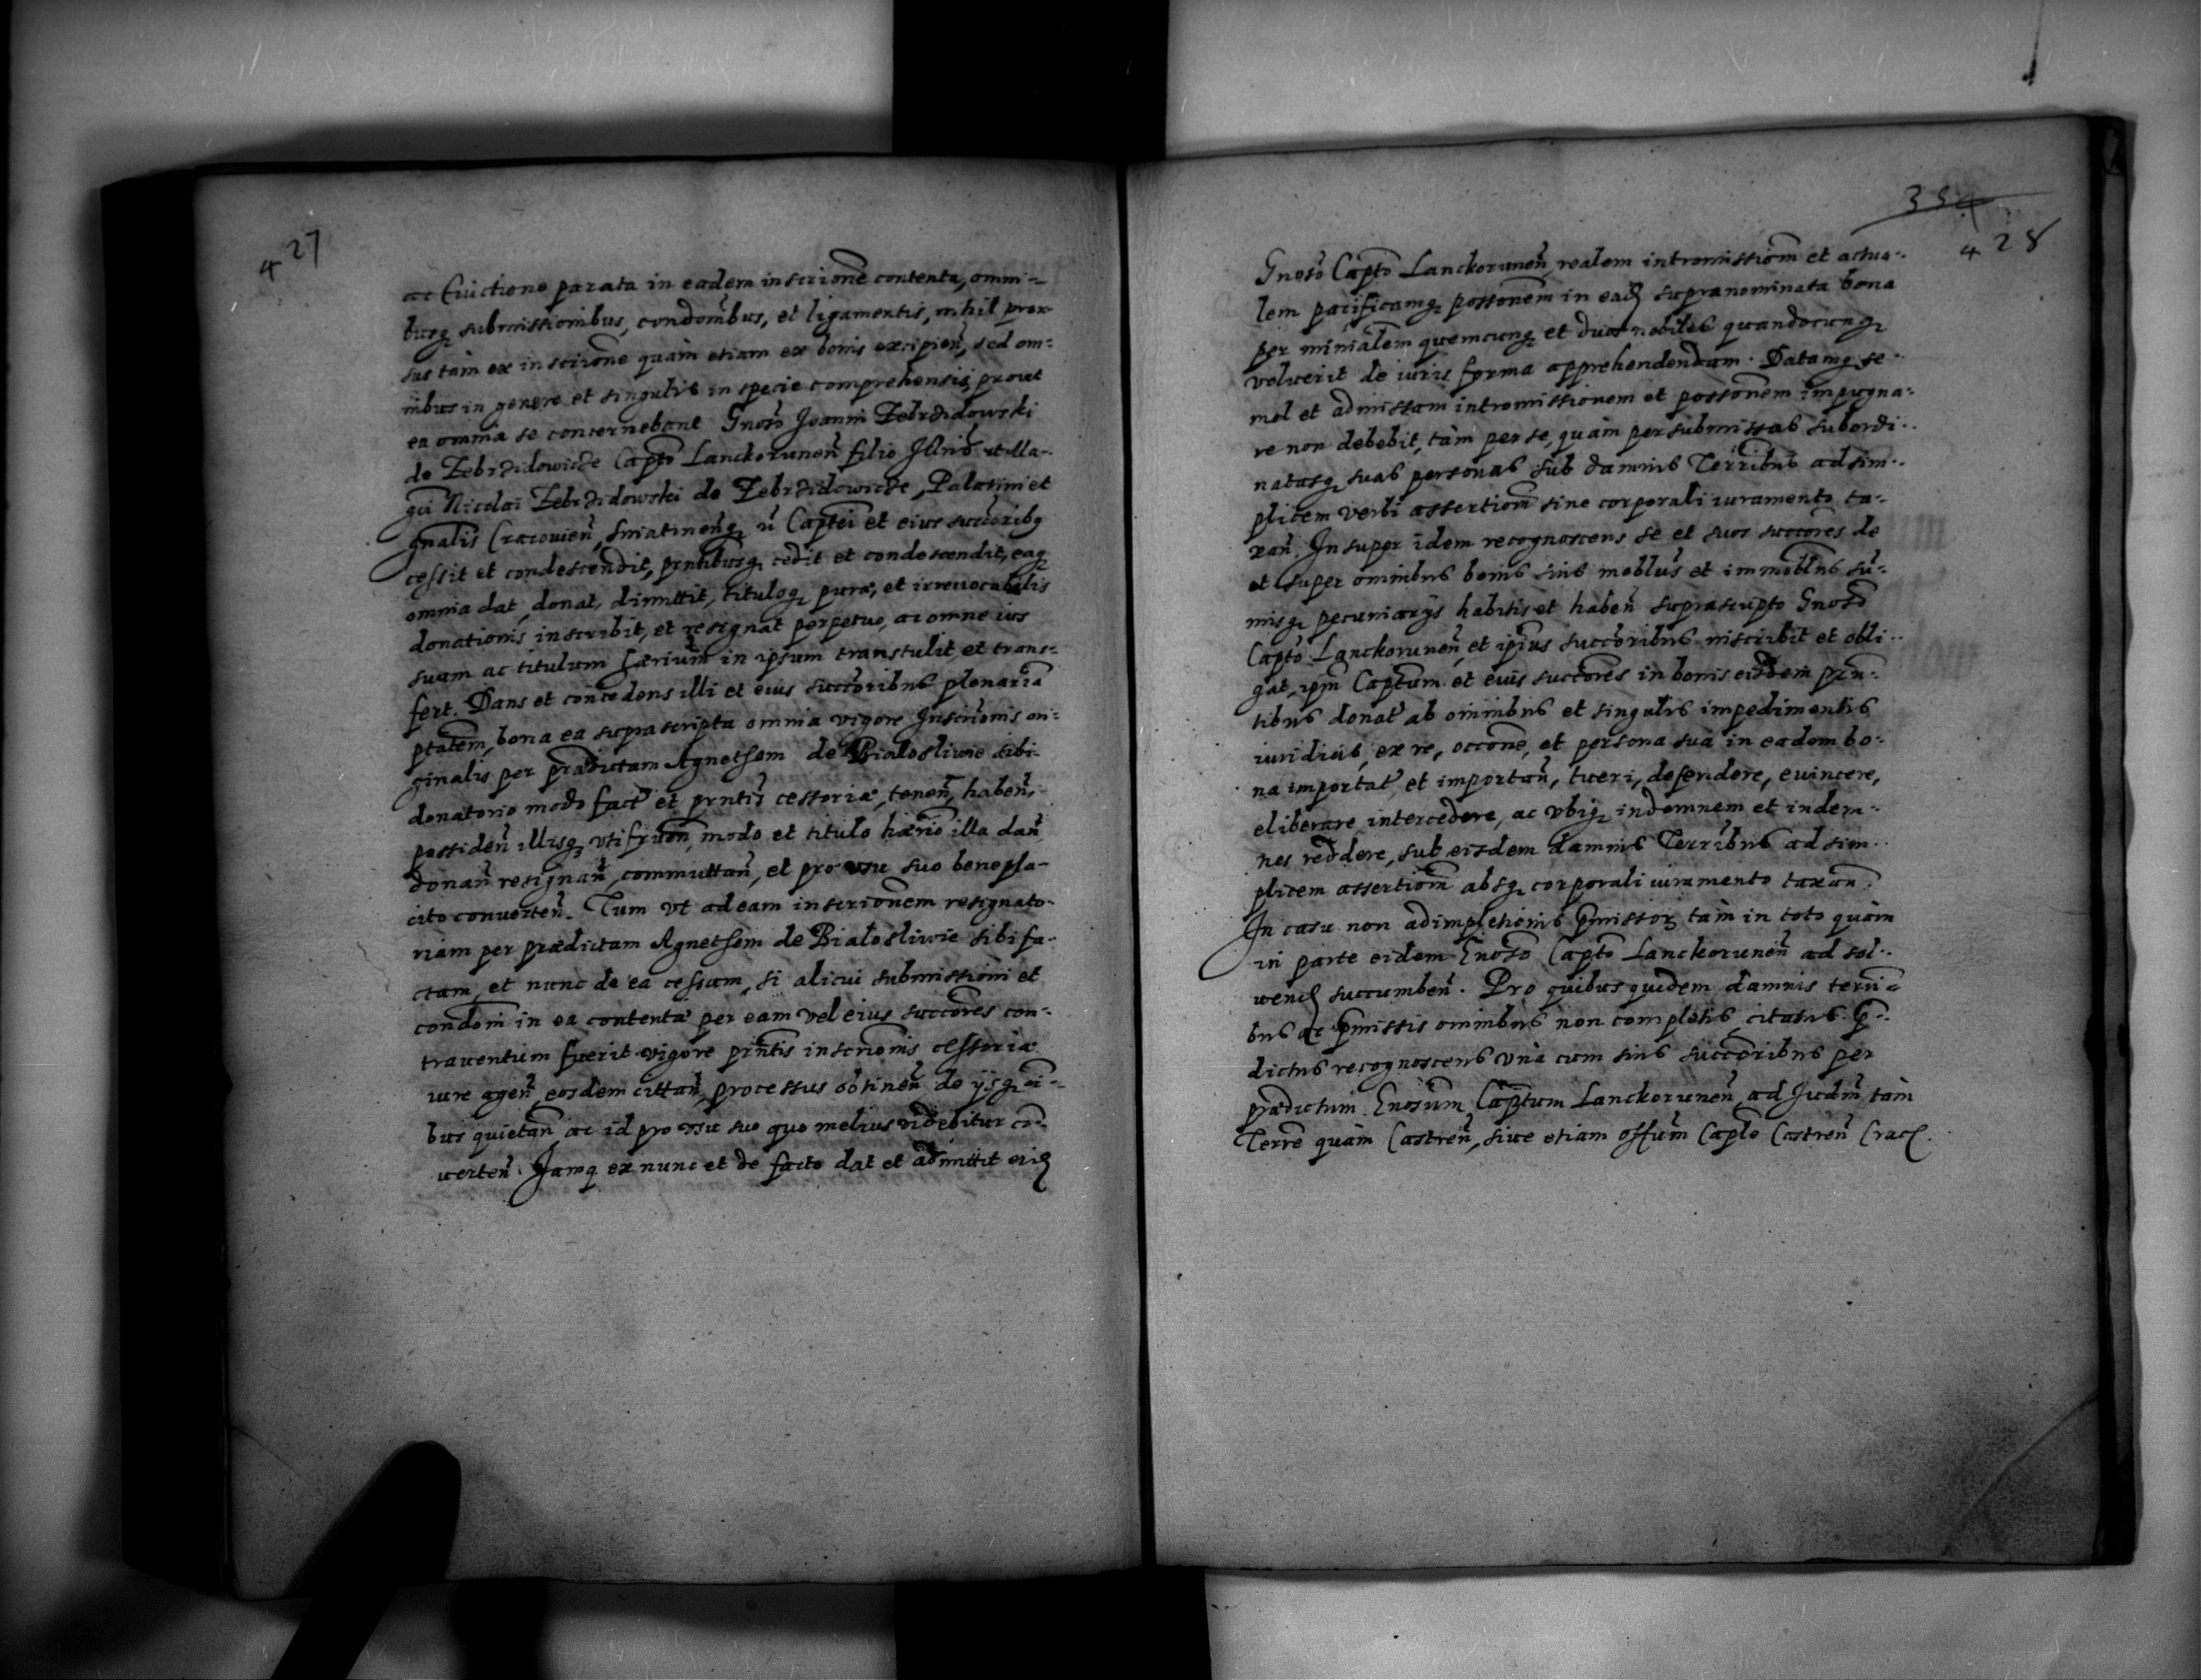 427
ac Euictione parata in eadem inscrione contenta, omni-
busq submissionibus, condombus, et ligamentis, nihil pror-
sus tàm ex inscrione quàm etiam ex bonis excipien, sed om-
nibus in genere et singulis in specie comprehensis, prout
ea omnia se concernebant Gnoso Joanni Zebrzidowski
de Zebrzidowicze Capto Lanckorunen filio Illris
Nicolai Zebrzidowski de Zebrzidowicze, Palatini et
gnalis Cracouien, Sniatinenq Captei et eius succoribq
cessit et condescendit, pntibusq cedit et condescendit, eaq
omnia dat, donat, dimittit, tituloq puræ, et irreuocabilis
donationis inscribit, et resignat perpetuo, ac omne ius
suum ac titulum hærium in ipsum transtulit, et trans-
fert. Dans et concedens illi et eius succoribus plenariã
ptatem, bona ea suprascripta omnia vigore Inscrionis ori-
ginalis per prædictam Agnethem de Bialosliwie sibi
donatorio modo fact et pntis cessoriæ, tenen, haben,
possiden illisq vtifruen, modo et titulo hærio illa dan
donan resignan, commuttan, et pro vsu suo benepla-
cito conuerten. Tum vt ad eam inscrionem resignato-
riam per prædictam Agnethem de Bialosliwie sibi fa-
ctam, et nunc de ea cessam, si alicui submissioni et
condoni in ea contentæ per eam vel eius succores con-
trauentum fuerit vigore pntis inscrionis cessoriæ
iure agen, eosdem cittan, processus obtinen de ijsq oi-
bus quietan, ac id pro vsu suo quo melius videbitur co-
uerten. Jamq ex nunc et de facto dat et admittit eid
354
428
Gnoso Capto Lanckorunen, realem intromissiom et actua-
lem pacificamq possonem in ead supranominata bona
per minialem quemcunq et duos nobiles quandocunq
voluerit de iuris forma apprehendendam. Datamq se-
mel et admissam intromissionem et possonem impugna-
re non debebit, tàm per se, quàm per submissas subordi-
natasq suas personas sub damnis Terribus ad sim-
plicem verbi assertiom sine corporali iuramento ta-
xan. Insuper idem recognoscens se et suos succores de
et super omnibus bonis suis moblus et immoblus su-
misq pecuniarijs habitis et haben suprascripto Gnoso
Capto Lanckorunen, et ipius succoribus inscribit et obli-
gat, ipm Captum et eius succores in bonis eisdem pn-
tibus donat ab omnibus et singulis impedimentis
iuridicis, ex re, occone, et persona sua in eadem bo-
na importat et importan, tueri, defendere, euincere,
eliberare, intercedere, ac vbiq indemnem et indem-
nes reddere, sub eisdem damnis Terribus ad sim-
plicem assertiom absq corporali iuramento taxan.
In casu non adimpletionis pmissor tàm in toto quàm
in parte eidem Gnoso Capto Lanckorunen ad sol-
uend succumben. Pro quibus quidem damnis terri-
bus ac pmissis omnibus non completis, citatus p-
dictus recognoscens vnà cum suis succoribus per
prædictum Gnosum Captum Lanckorunen ad Judm tàm
Terre quàm Castren, siue etiam offum Caple Castren Crac.